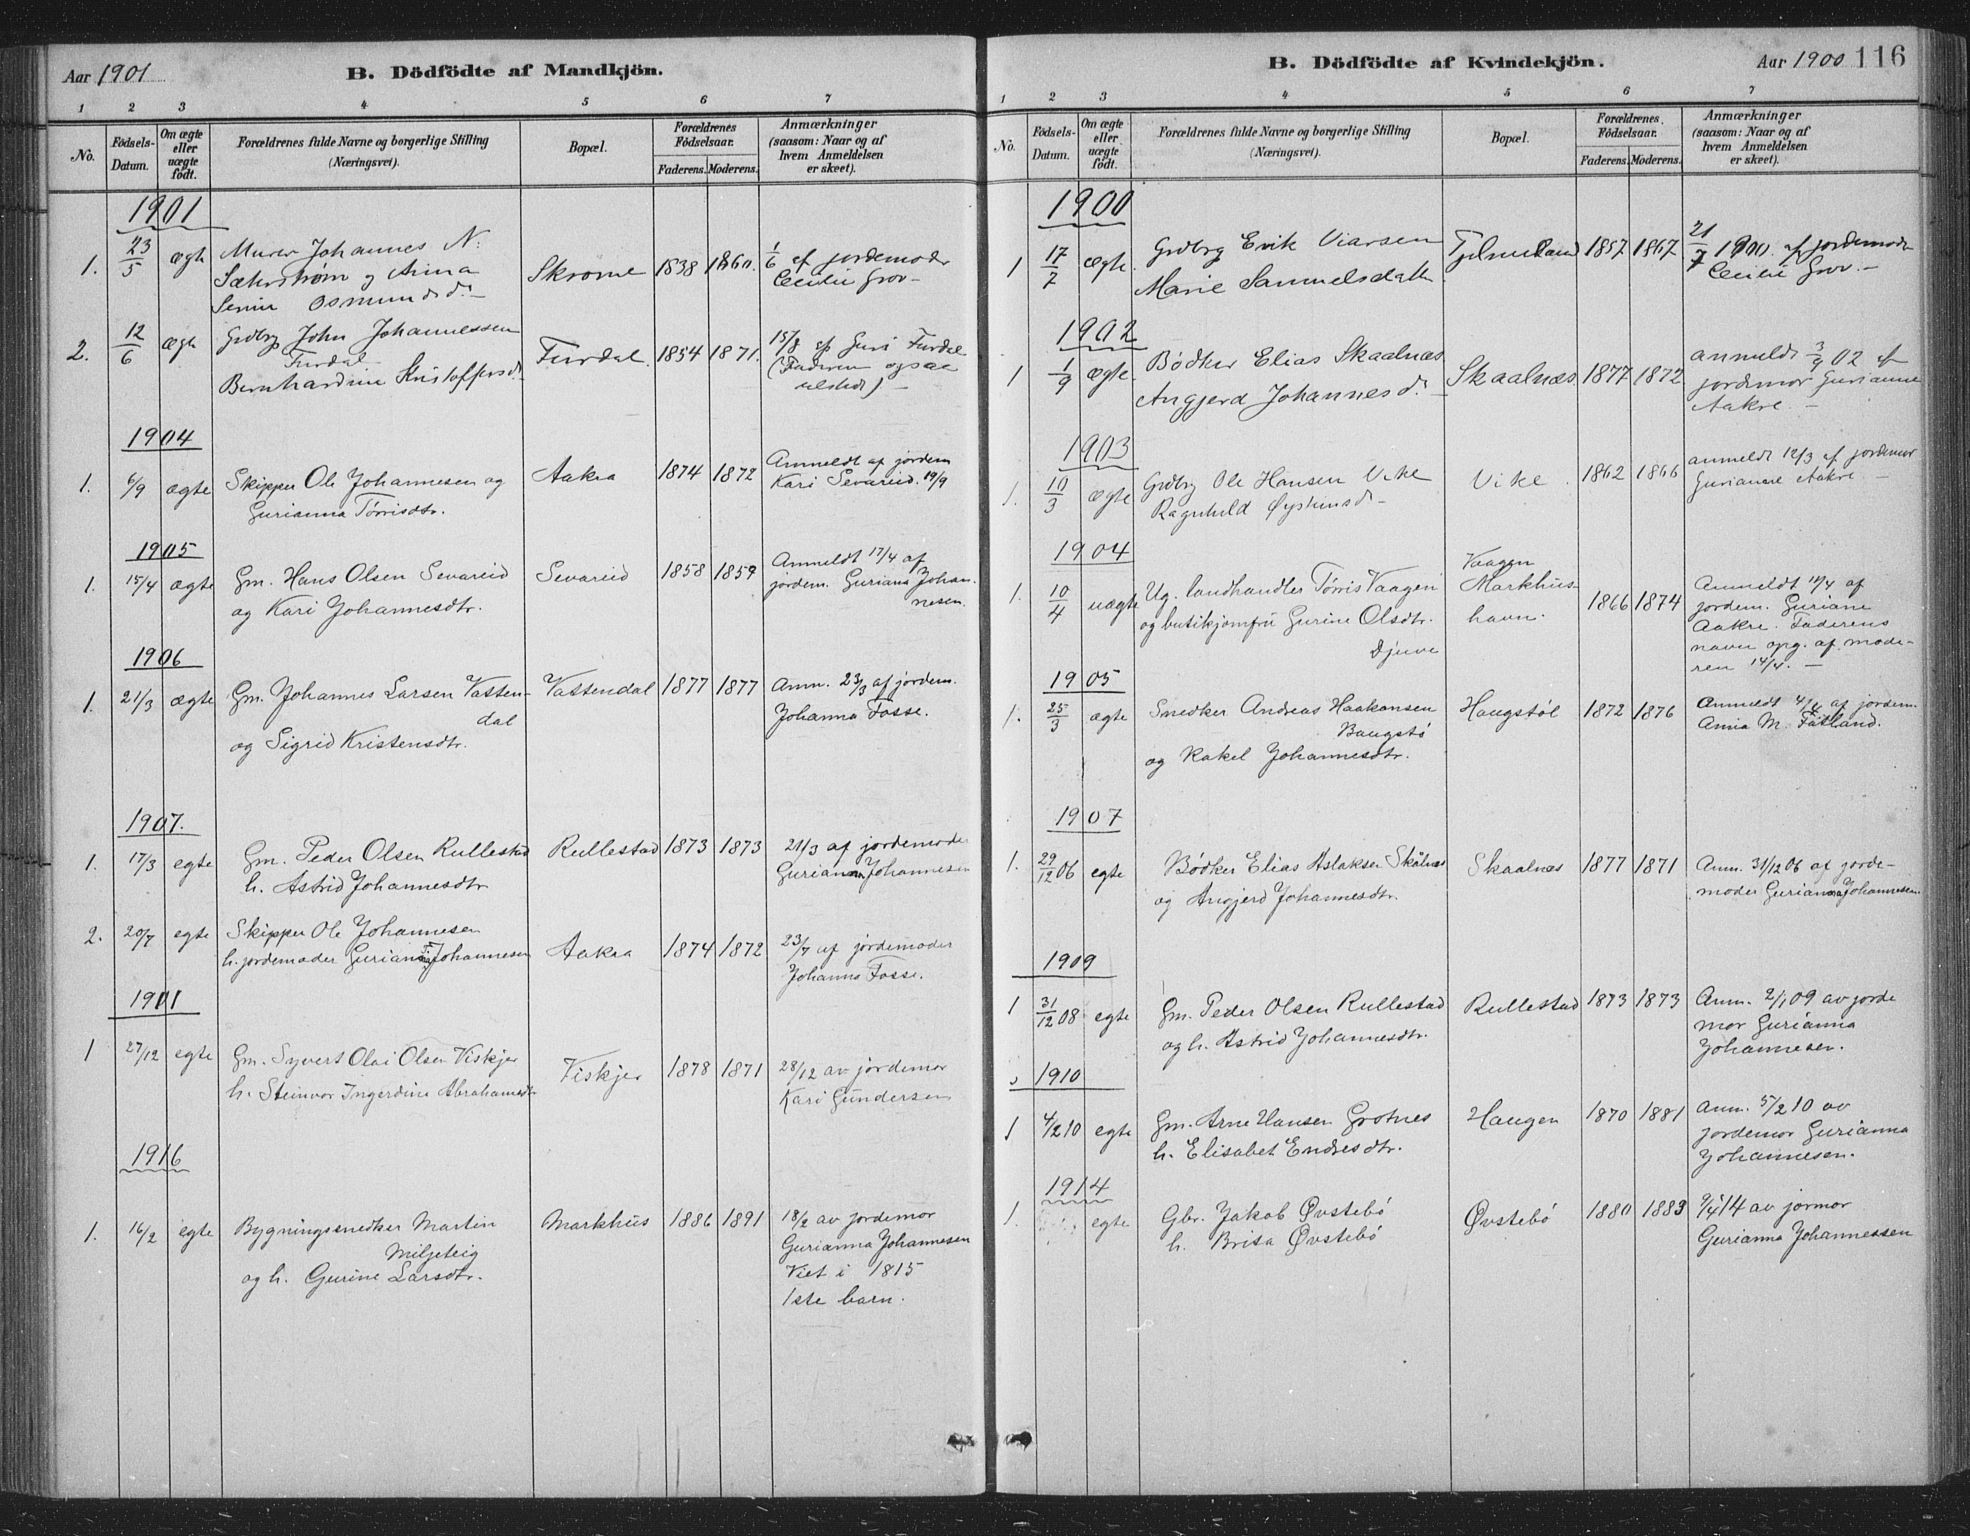 Aar 1901
B. Dödfödte af Mandkjön.
1 2 3 4 5 6 7
No.
Födsels-
Datum.
Om ægte
eller
uægte
født.
Forældrenes fulde Navne og borgerlige Stilling
(Næringsvei).
Bopæl.
Forældrenes
Födselsaar.
Faderens. Moderens.
Anmærkninger
(saasom: Naar og af
hvem Anmeldelsen
er skeet).
1901
1. 23/5 ægte Murer Johannes N: Skromme 1838 1860. 1/6 af jordemoder
og Anna Cecilie Grov-
Serine Osmundsd.-
2. 12/6 ægte Grdbr John Johannessen Furdal 1854 1871. 15/8 af Guri Furdal
Furdal (Faderen ogsaa
Bernhardine Kristoffersd. )-
1904
1. 6/9 ægte Skipper Ole Johannesen og Aakra 1874 1872 Anmeldt af jordem
Gurianna Tørrisdtr. Kari Sevareid. 19/9
1905
1. 15/4 ægte Gm. Hans Olsen Sevareid Sevareid 1858 1859 Anmeldt 17/4 af
og Kari Johannesdtr. jordem. Guriana Johan-
nesen.
1906
1. 21/3 ægte Gm. Johannes Larsen Vatten- Vattendal 1877 1877 Anm. 23/3 af jordem.
dal Johanna Fosse.
og Sigrid Kristensdtr.
1907.
1. 17/3 egte Gm. Peder Olsen Rullestad Rullestad 1873 1873 21/3 af jordemoder
h. Astrid Johannesdtr Gurianna Johannesen
2. 20/7 egte Skipper Ole Johannesen Aakra 1874 1872 23/7 af jordemoder
h. jordemoder Gurianna Johannesen Johanna Fosse.
1911
1 27/12 egte Gm. Syvert Olai Olsen Viskjer Viskjer 1878 1871 28/12 av jordemor
h. Steinvor Ingerdine Abrahamsdtr Kari Gundersen
1916
1. 16/2 egte Bygningssnedker Martin Markhus 1886 1891 18/2 av jordemor
Miljeteig Gurianna Johannesen
og h. Gurine Larsdtr. Viet i 1815
1ste barn.
Aar 1900 116
B. Dödfödte af Kvindekjön.
1 2 3 4 5 6 7
No.
Födsels-
Datum.
Om ægte
eller
uægte
født.
Forældrenes fulde Navne og borgerlige Stilling
(Næringsvei).
Bopæl.
Forældrenes
Födselsaar.
Faderens. Moderens.
Anmærkninger
(saasom: Naar og af
hvem Anmeldelsen
er skeet).
1900
1 17/7 ægte. Grdbrg Erik Viarsen Fjelmeland 1857 1867 21/7 1900 af jordemoder
Marie Samuelsdatt. Cecilie Grov.-
1902
1 1/9 ægte. Bødker Elias Skaalnæs Skaalnæs 1877 1872 anmeldt 3/9 02 af
Angjerd Johannesd.- jordemor Gurianne
Aakre.-
1903
1. 10/3 ægte Grdbrg Ole Hansen Vike Vike. 1862 1866 anmeldt 12/3 af jordemor
Ragnhild Øystensd- Gurianne Aakre.-
1904
1. 10/4 uægte Ug. landhandler Tørris Vaagen Vaagen 1866 1874 Anmeldt 12/4 af
og butikjomfru Gurine Olsdtr. Markhus- jordem. Guriane
Djuve havn. Aakre. Faderens
navn opg. af mode-
ren 14/4.-
1905
1. 25/3 ægte Snedker Andreas Haakonsen Haugstøl 1872 1876 Anmeldt 4/4 af jordem.
Baugstø Anna M. Fatland.
og Rakel Johannesdtr.
1907
1. 29/12 06 egte Bødker Elias Aslaksen Skålnes Skaalnes 1877 1871 Anm. 31/12 06 af jorde-
og Angjerd Johannesdtr. moder Gurianna Johannesen.
1909
1 31/12 08 egte Gm. Peder Olsen Rullestad Rullestad 1873 1873 Anm. 2/1 09 av jorde
og h. Astrid Johannesdtr. mor Gurianna
Johannesen.
1910
1 4/2 10 egte Gm. Arne Hansen Grotnes Haugen 1870 1881 Anm. 5/2 10 av
h. Elisabet Endresdtr. jordemor Gurianna
Johannesen.
1914
1. egte Gbr. Jakob Øvstebö Øvstebö 1880 1883 9/4 14 av jormor
h. Brita Øvstebö Gurianna Johannessen